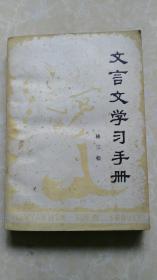 文言文学习手册